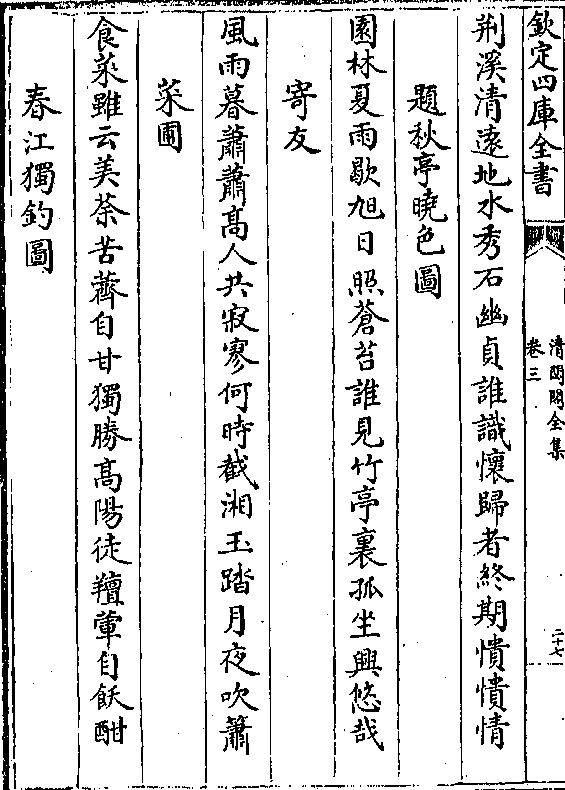 欽定四庫全書
清閟閣全集
卷三
二十七
荆溪清逺地水秀石幽貞誰識懷歸者終期憒憒情
題秋亭曉色圖
園林夏雨歇旭日照蒼苔誰見竹亭裏孤坐興悠哉
寄友
風雨暮蕭蕭髙人共寂寥何時截湘玉踏月夜吹簫
菜圃
食菜雖云美荼苦薺自甘獨勝髙陽徒羶葷自飫酣
春江獨釣圖